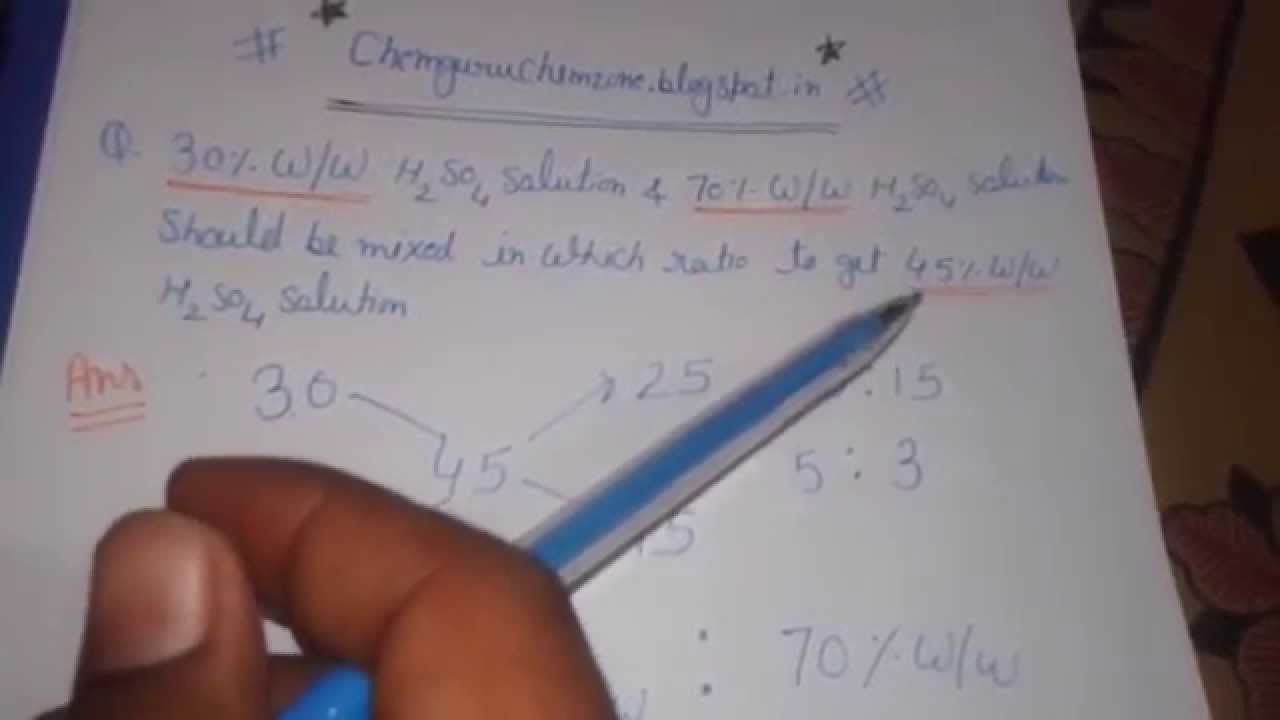 # * Chemguruchemzone.blogspot.in * #
Q. 30% W/W H2SO4 Salution & 70% W/W H2SO4 Salution
Should be mixed in which ratio to get 45% W/W
H2SO4 Salution
Ans 30 25 : 15
45 5 : 3
15
W : 70% W/W